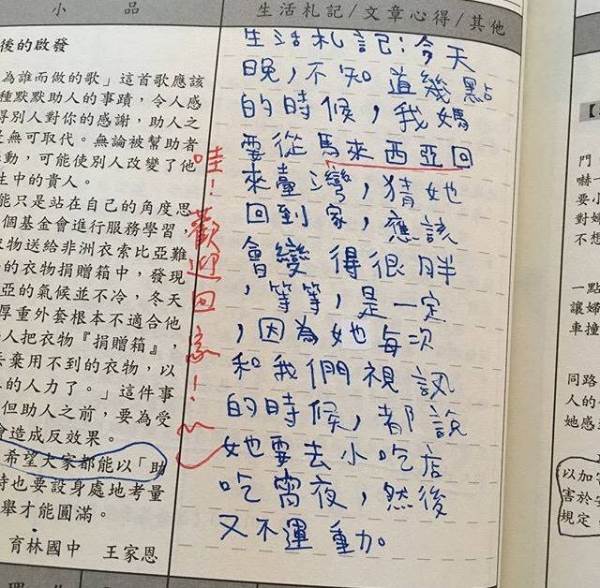 小 品
生活札記/文章心得/其他
後的啟發
為誰而做的歌」這首歌應該
種默默助人的事蹟，令人感
得別人對你的感謝，助人之
是無可取代。無論被幫助者
動，可能使別人改變了他
生中的貴人。
能只是站在自己的角度思
個基金會進行服務學習，
衣物送給非洲衣索比亞難
的衣物捐贈箱中，發現
亞的氣候並不冷，冬天
厚重外套根本不適合他
人把衣物『捐贈箱』，
丟棄用不到的衣物，以
的人力了。」這件事
但助人之前，要為受
會造成反效果。
希望大家都能以「助
時也要設身處地考量
舉才能圓滿。
育林國中 王家恩
生活札記：今天
晚，不知道幾點
的時候，我媽
要從馬來西亞回
來臺灣，猜她
回到家，應該
會變得很胖
，等等，是一定
，因為她每次
和我們視訊
的時候，都說
她要去小吃店
吃宵夜，然後
又不運動。
哇！歡迎回家！
【
門
嚇一
要小
對婦
不想
一點
讓婦
車撞
同路
人的
她感
以加
害於
規定